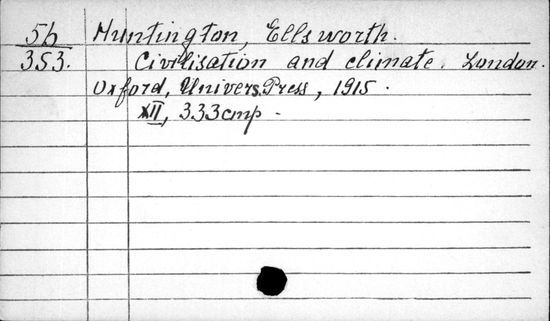 56 Huntington, Ellsworth.
353. Civilisation and climate. London.
Oxford, Univers. Press, 1915.
XII, 333 стр.